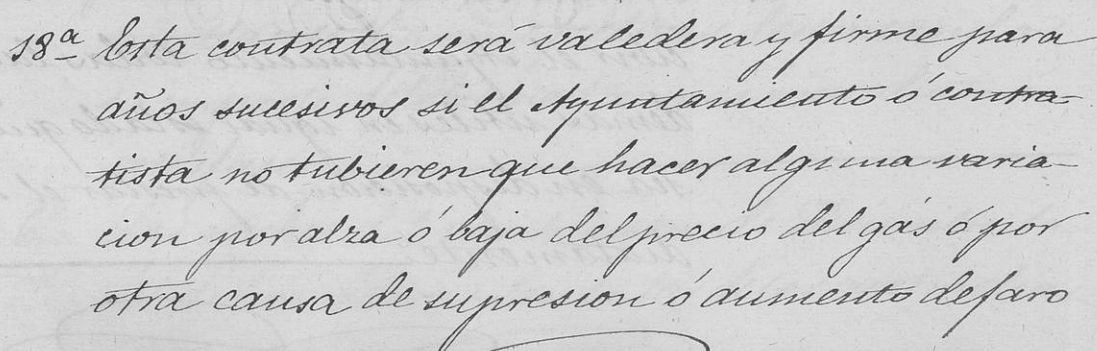 18ª Esta contrata será valedera y firme para
años sucesivos si el Ayuntamiento ó contra-
tista no tubieren que hacer alguna varia-
cion por alza ó baja del precio del gás ó por
otra causa de supresion ó aumento de faro